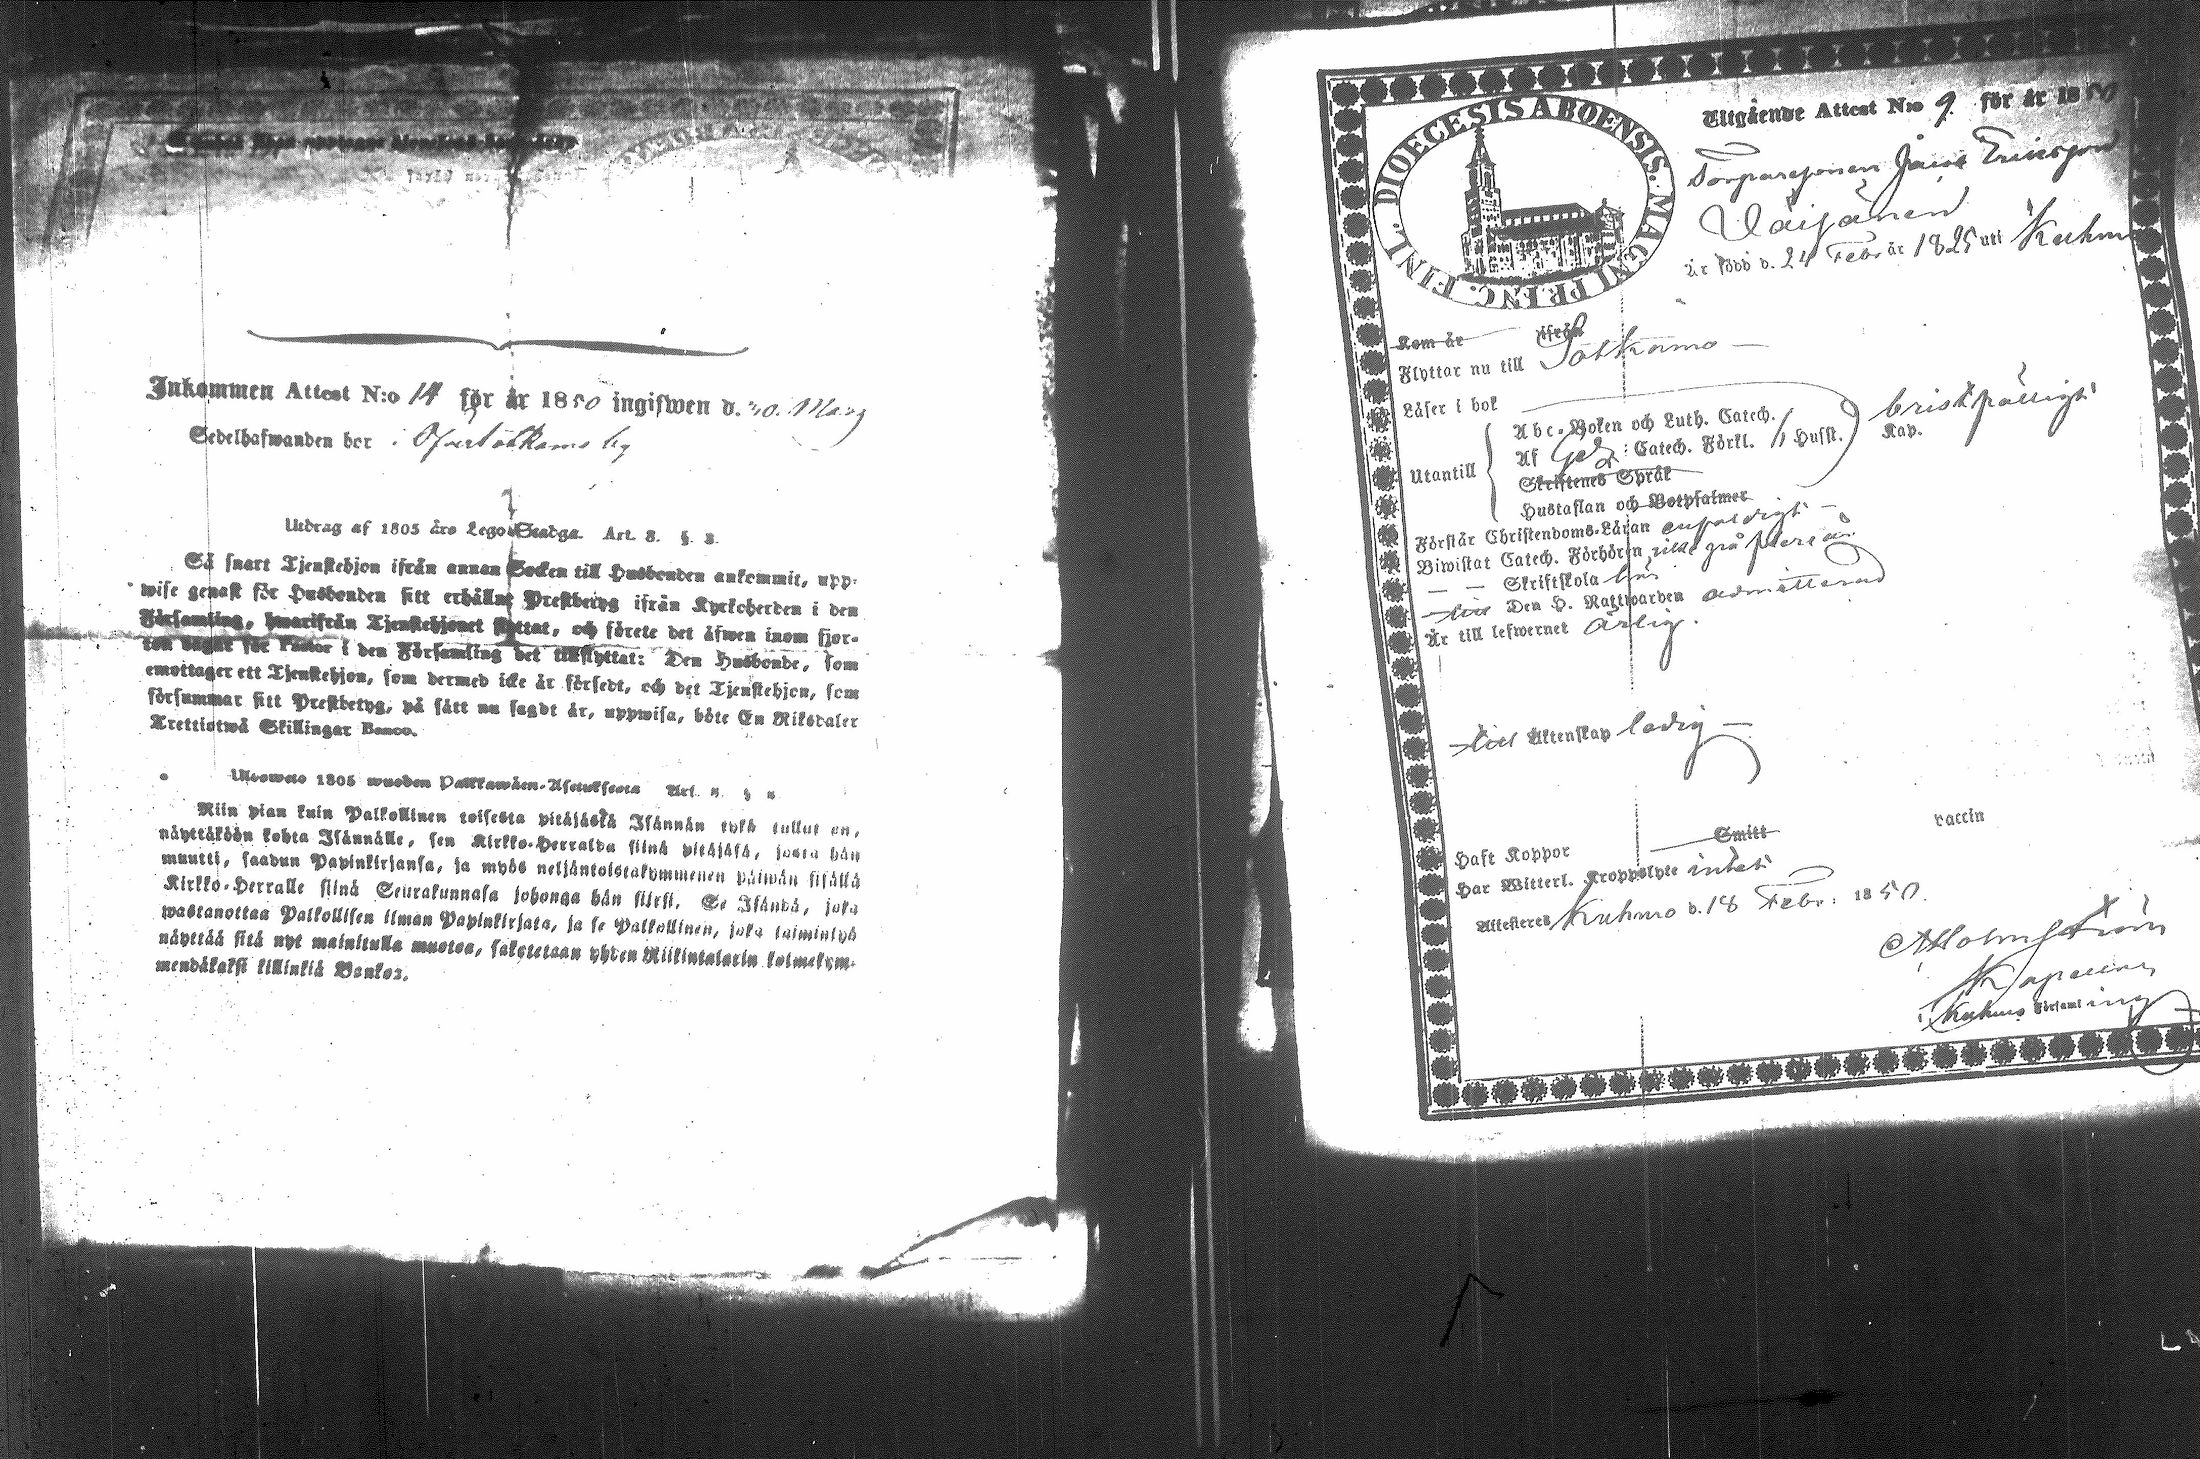 Inkommen Attest N:o 14 för år 1850 ingifwen d. 30. Mars
Sedelhafwanden bor i Öfversotkamo by
Utdrag af 1805 års Lego-Stadga. Art. 8. §. 8.
Så snart Tjenstehjon ifrån annan Socken till Husbonden ankommit, upp-
wise genast för Husbonden sitt erhållne Prestbetyg ifrån Kyrkoherden i den
Församling, hwarifrån Tjenstehjonet flyttat, och förete det äfwen inom fjor-
ton dagar för Pastor i den Församling det tillflyttat: Den Husbonde, som
emottager ett Tjenstehjon, som dermed icke är försedt, och det Tjenstehjon, som
försummar sitt Prestbetyg, på sätt nu sagdt är, uppwisa, böte En Riksdaler
Trettiotwå Skillingar Banco.
Ulosweto 1805 wuoden Palkkawäen-Asetuksesta Art.
Niin pian kuin Palkollinen toisesta pitäjästä Isännän tykö tullut on,
näyttäköön kohta Isännälle, sen Kirkko-Herralda siinä pitäjäsä, josta hän
muutti, saadun Papinkirjansa, ja myös neljäntoistakymmenen päiwän sisällä
Kirkko-Herralle siinä Seurakunnasa johonga hän siirsi. Se Isändä, joka
wastanottaa Palkollisen ilman Papinkirjata, ja se Palkollinen, joka laiminlyö
näyttää sitä nyt mainitulla muotoa, sakotetaan yhden Riikintalarin kolmekym-
mendäkaksi killinkiä Bankos.
DIOECESIS ABOENSIS. MAGNI PRINC. FINL.
Utgående Attest N:o 9 för år 1850
Torparesonen Jans Ericsson
Väisänen
är född d. 24 Febr år 1825 uti Kuhmo
Kom år ifrån
Flyttar nu till Sotkamo
Läser i bok
Abc-Boken och Luth. Catech.
Utantill Af Catech. Förkl. Husst. Kap. bristfälligt
Skriftenes Språk
Hustaflan och Botpsalmer
Förstår Christendoms-Läran enfaldigt
Biwistat Catech. Förhören icke på flere år
Skriftskola här
till Den H. Nattwarden admitterad
Är till lefwernet ärlig.
till Äktenskap ledig
Haft Koppor Smitt vaccin
Har Witterl. Kroppslyte intet
Attesteras Kuhmo d. 18 Febr: 1850.
A Holmström
Kapellan
i Kuhmo Församling